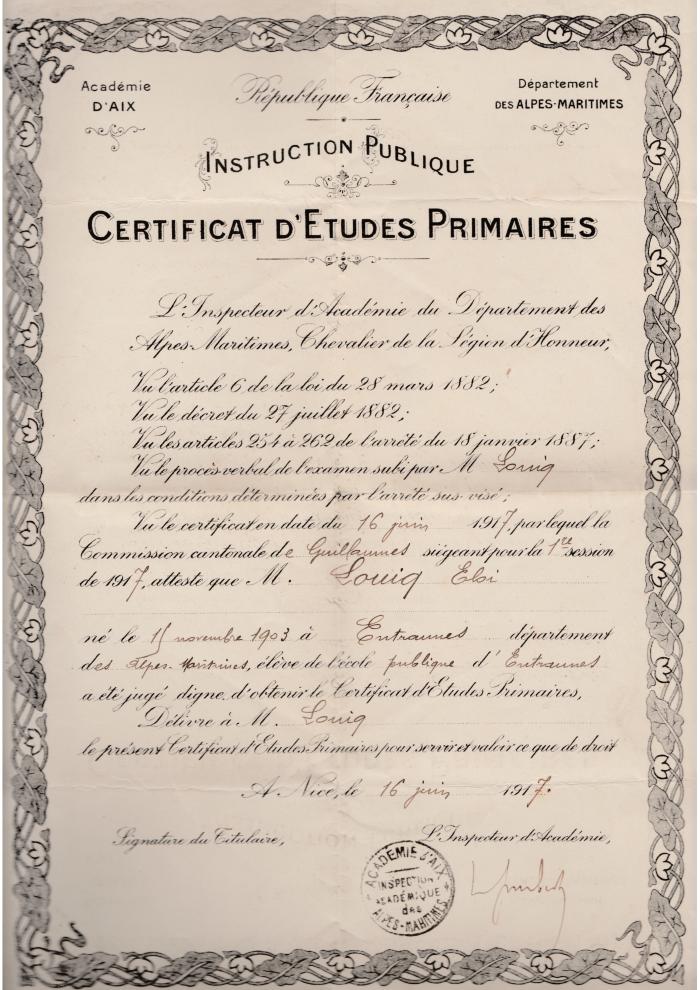 Académie
D'AIX
République Française
Département
DES ALPES-MARITIMES
INSTRUCTION PUBLIQUE
CERTIFICAT D'ETUDES PRIMAIRES
L'Inspecteur d'Académie du Département des
Alpes-Maritimes, Chevalier de la Légion d'Honneur,
Vu l'article 6 de la loi du 28 mars 1882;
Vu le décret du 27 juillet 1882;
Vu les articles 254 à 262 de l'arrêté du 18 janvier 1887;
Vu le procès-verbal de l'examen subi par M Louiq
dans les conditions déterminées par l'arrêté sus-visé;
Vu le certificat en date du 16 juin 1917, par lequel la
Commission cantonale de Guillaumes siégeant pour la 1re session
de 1917, atteste que M. Louiq Eloi
né le 15 novembre 1903 à Entraunes département
des Alpes-Maritimes, élève de l'école publique d'Entraunes
a été jugé digne d'obtenir le Certificat d'Etudes Primaires,
Délivré à M. Louiq
le présent Certificat d'Etudes Primaires pour servir et valoir ce que de droit
A Nice, le 16 juin 1917.
Signature du Titulaire,
L'Inspecteur d'Académie,
ACADÉMIE D'AIX
INSPECTION
ACADÉMIQUE
des
ALPES-MARITIMES